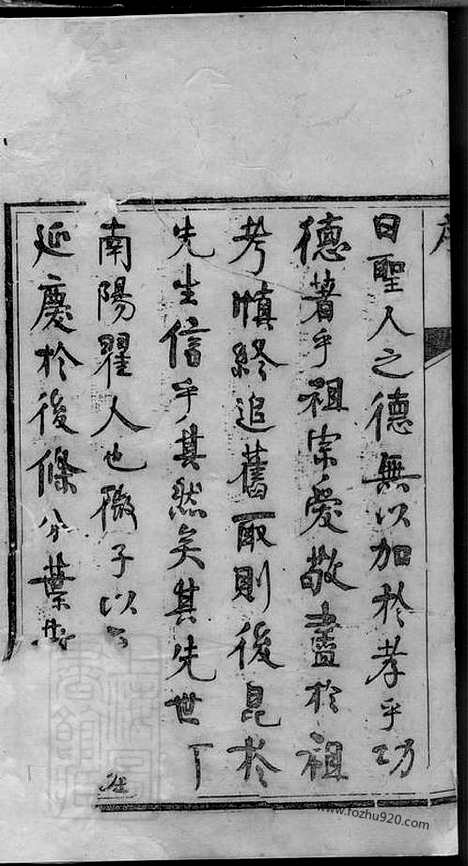 曰聖人之德無以加於孝乎功
德著乎祖宗愛敬盡於祖
考慎終追舊取則後昆於
先生信乎其然矣其先世
南陽翟人也微子以
延慶於後條分葉
www.fozhu920.com